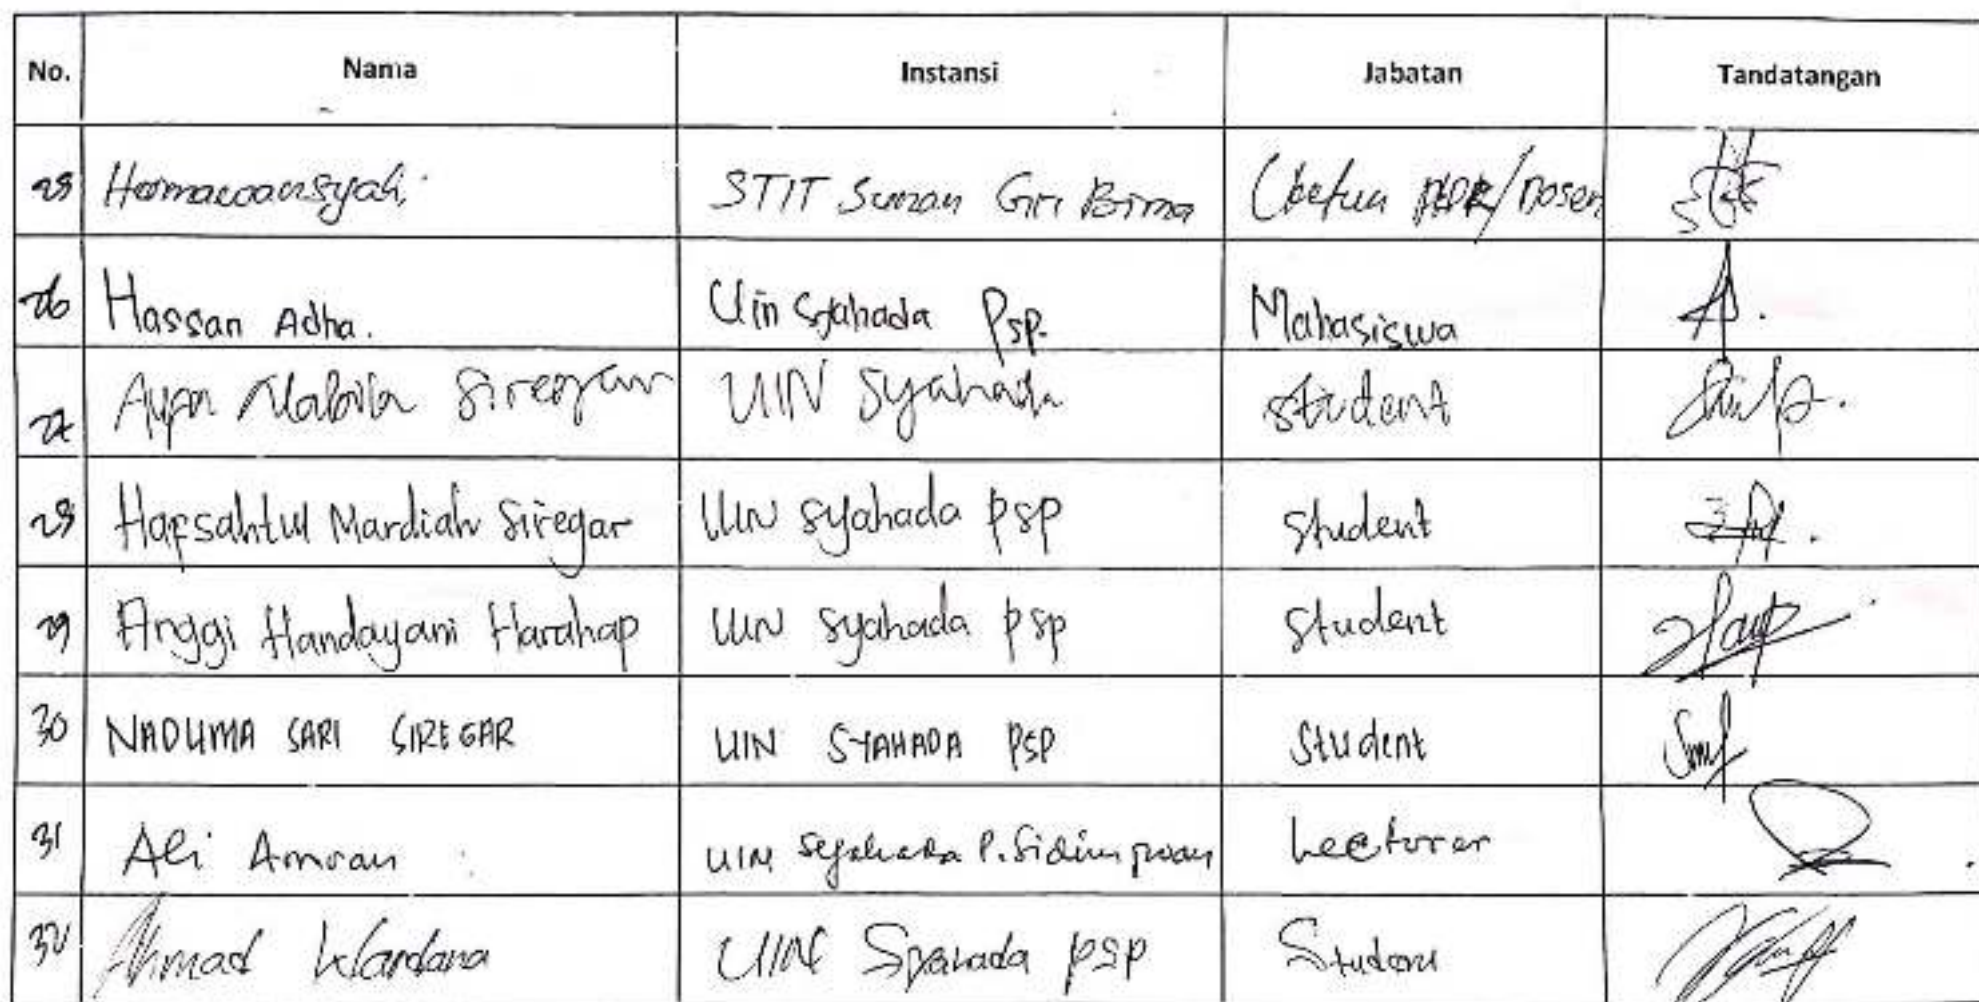 No. Nama Instansi Jabatan Tandatangan
25 Hermawansyah STIT Sunan Giri Bima Ketua /Dosen
26 Hassan Adha. Uin Syahada Psp. Mahasiswa
27 Nabila Siregar UIN Syahada student
28 Hapsahtul Mardiah Siregar UIN Syahada PSP Student
29 Anggi Handayani Harahap UIN Syahada PSP Student
30 NADUMA SARI SIREGAR UIN SYAHADA PSP Student
31 Ali Amran UIN Syahada P. Sidimpuan Lecturer
32 Ahmad Wardana UIN Syahada PSP Student